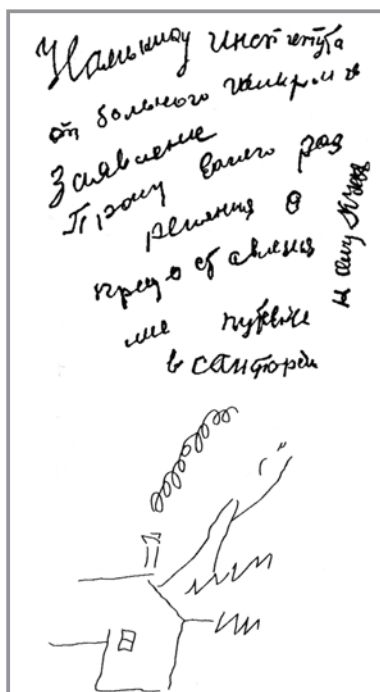 Начальнику института
от больного
Заявление
Прошу вашего раз
решения о
предоставления
мне путевке
в санторий